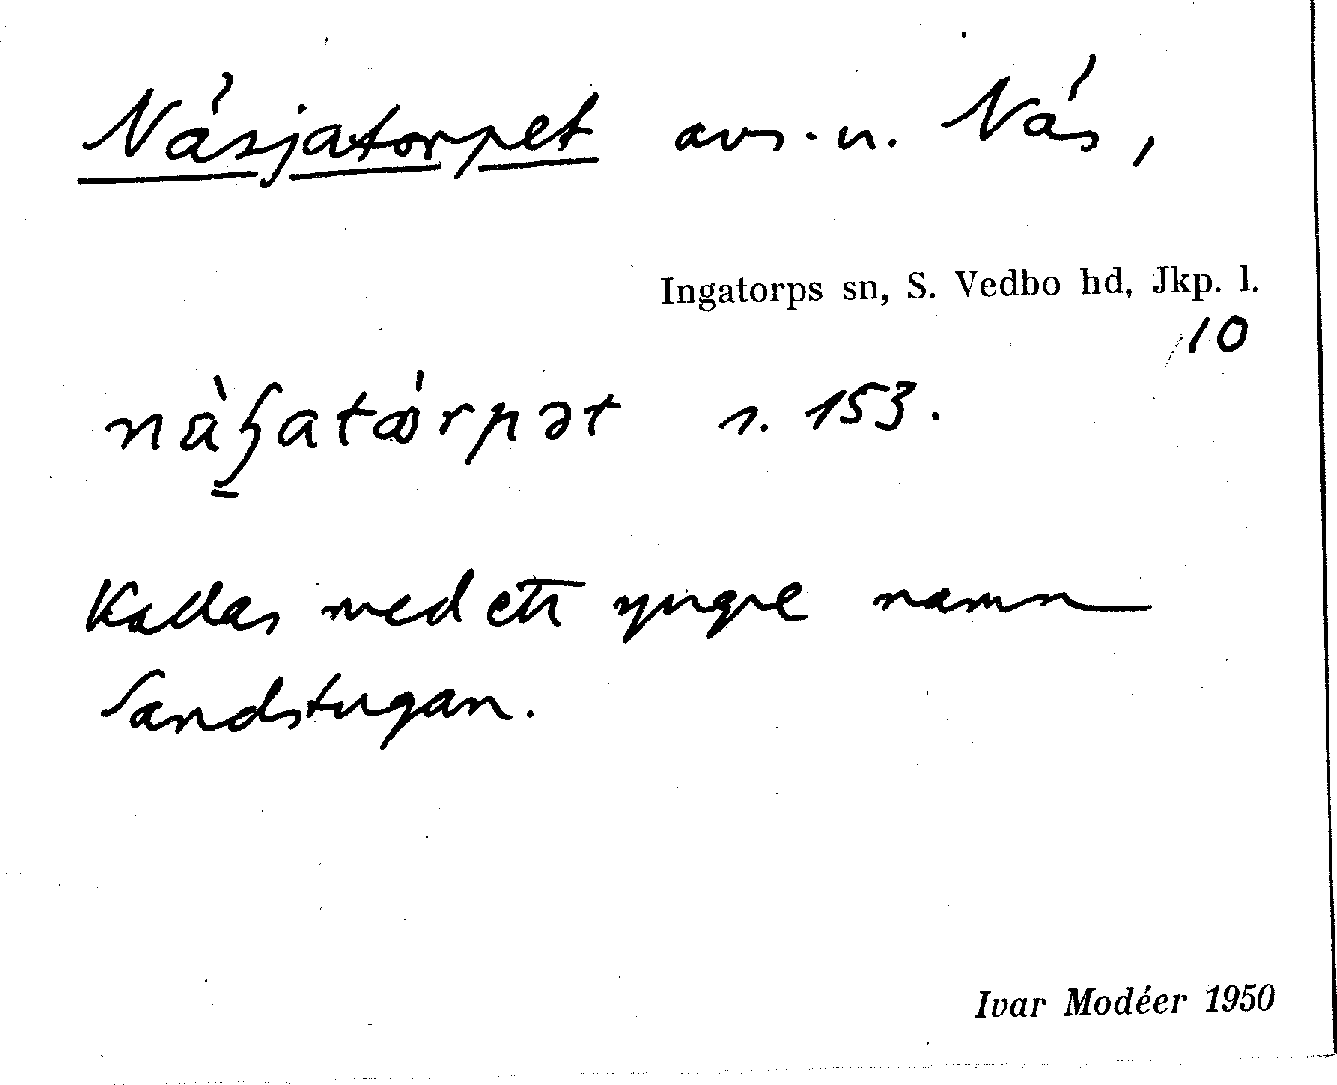 Näsjatorpet avs. u. Näs,
Ingatorps sn, S. Vedbo hd, Jkp. l.
10
s. 153.
Kallas med ett yngre namn
Sandstugan.
Ivar Modéer 1950